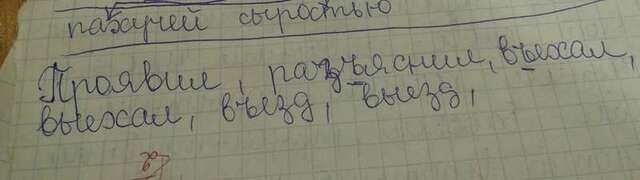 пахучей сыростью
Проявил, разъяснил, въехал,
выехал, въезд, выезд,